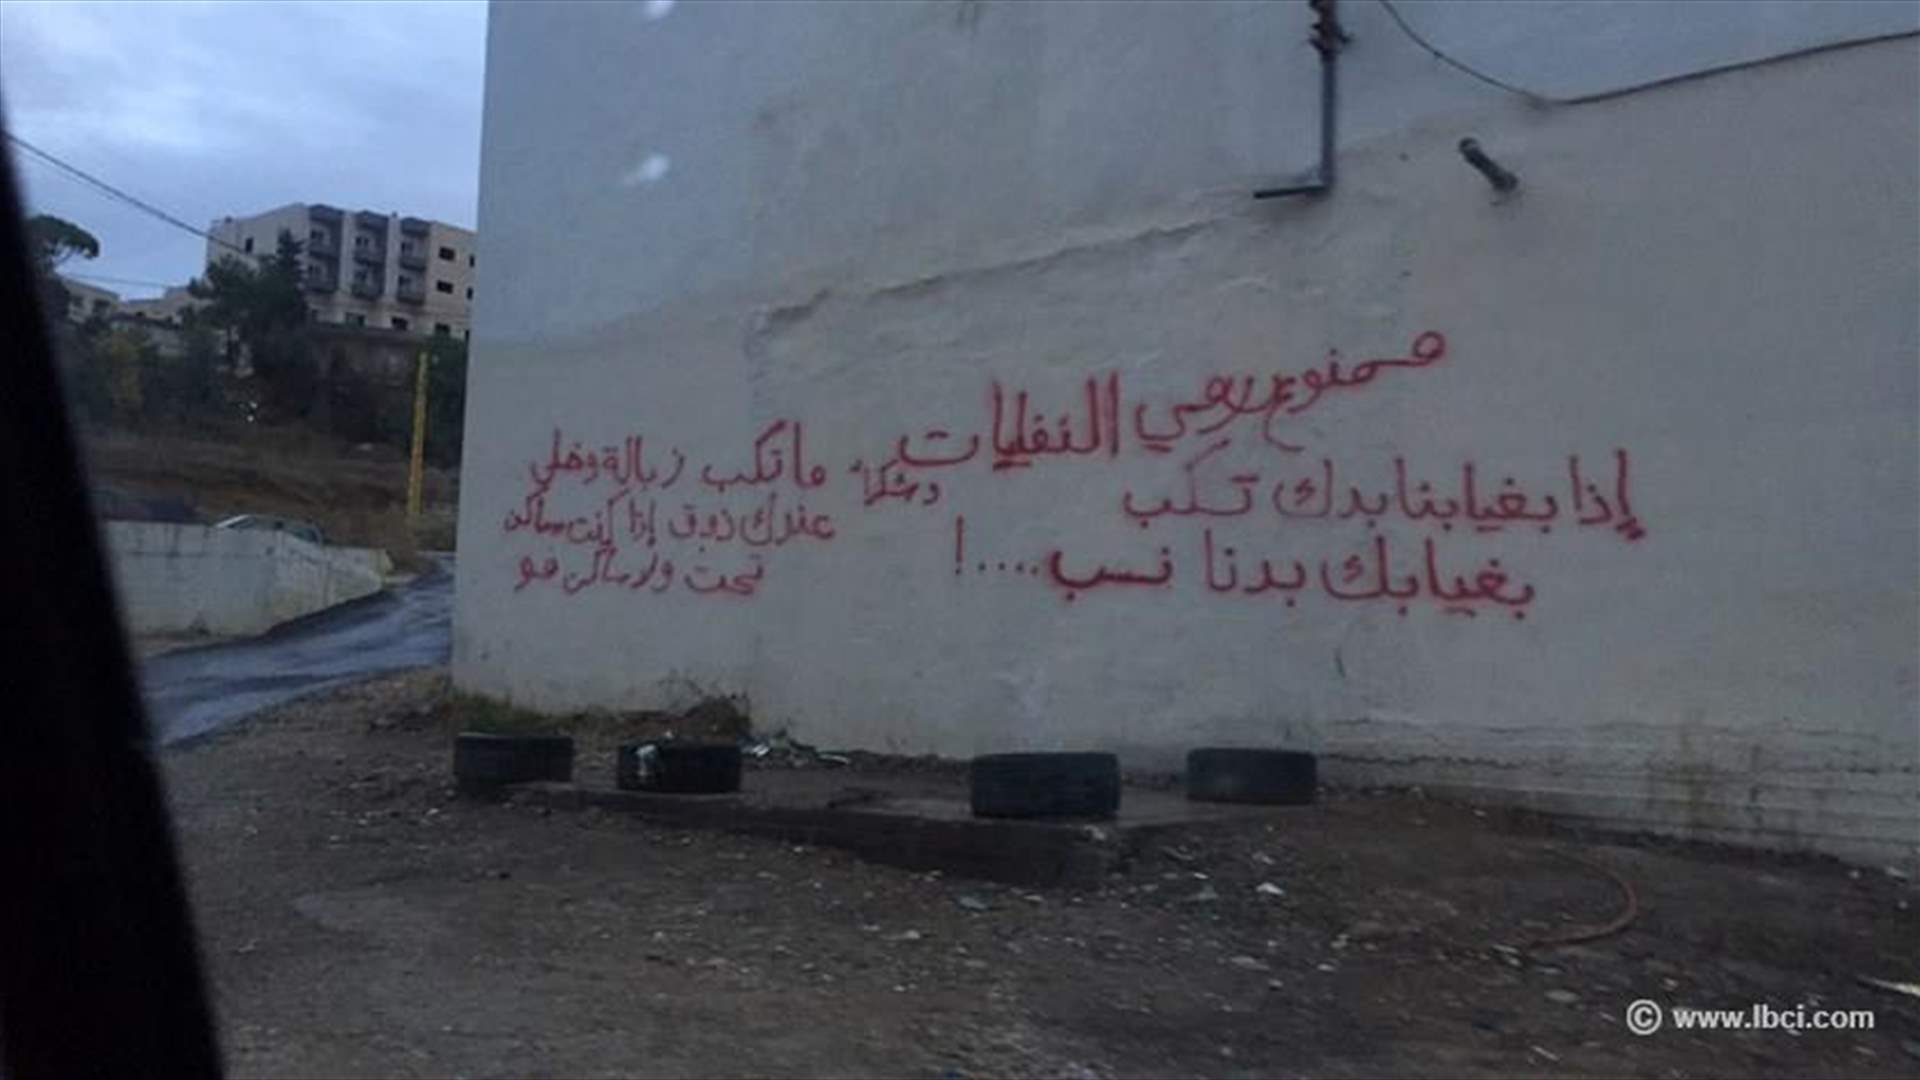 ممنوع رمي النفايات
إذا بغيابنا بدك تكب
بغيابك بدنا نسب....!
وشكراً
ما تكب زبالة وخلي
عندك ذوق إذا كنت ساكن
تحت ولا ساكن فو
© www.lbci.com